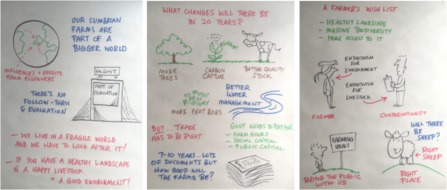 OUR CUMBRIAN
FARMS ARE
PART OF A
BIGGER WORLD
INFLUENCES & EFFECTS
FROM ELSEWHERE
THERE'S NO
FOLLOW-THRU
& EVALUATION
- WE LIVE IN A FRAGILE WORLD
AND WE HAVE TO LOOK AFTER IT!
- IF YOU HAVE A HEALTHY LANDSCAPE
& A HAPPY LIVESTOCK
= A GOOD ENVIRONMENT!
WHAT CHANGES WILL THERE BE
IN 20 YEARS?
MORE
TREES
CARBON
CAPTURE
BETTER QUALITY
STOCK
MORE PEAT BOGS
BETTER
WATER
MANAGEMENT
BUT TRADE
HAS TO BE RIGHT
GOVT NEEDS BETTER
- FARM GOODS
- SOCIAL CAPITAL
- PUBLIC CAPITAL
7-10 YEARS... LOTS
OF DOCUMENTS BUT
HOW GOOD WILL
THE FARMS BE?
A FARMER'S WISH LIST
- HEALTHY LANDSCAPE
- MASSIVE BIODIVERSITY
- MORE ACCESS TO IT
ENTHUSIASM
FOR
ENVIRONMENT
ENTHUSIASM
FOR
LIVESTOCK
FARMER
CONSERVATIONIST
FARMING
IDEAS!
BRING THE PUBLIC
WITH US
WILL THERE
BE SHEEP?
RIGHT
SHEEP
RIGHT
PLACE